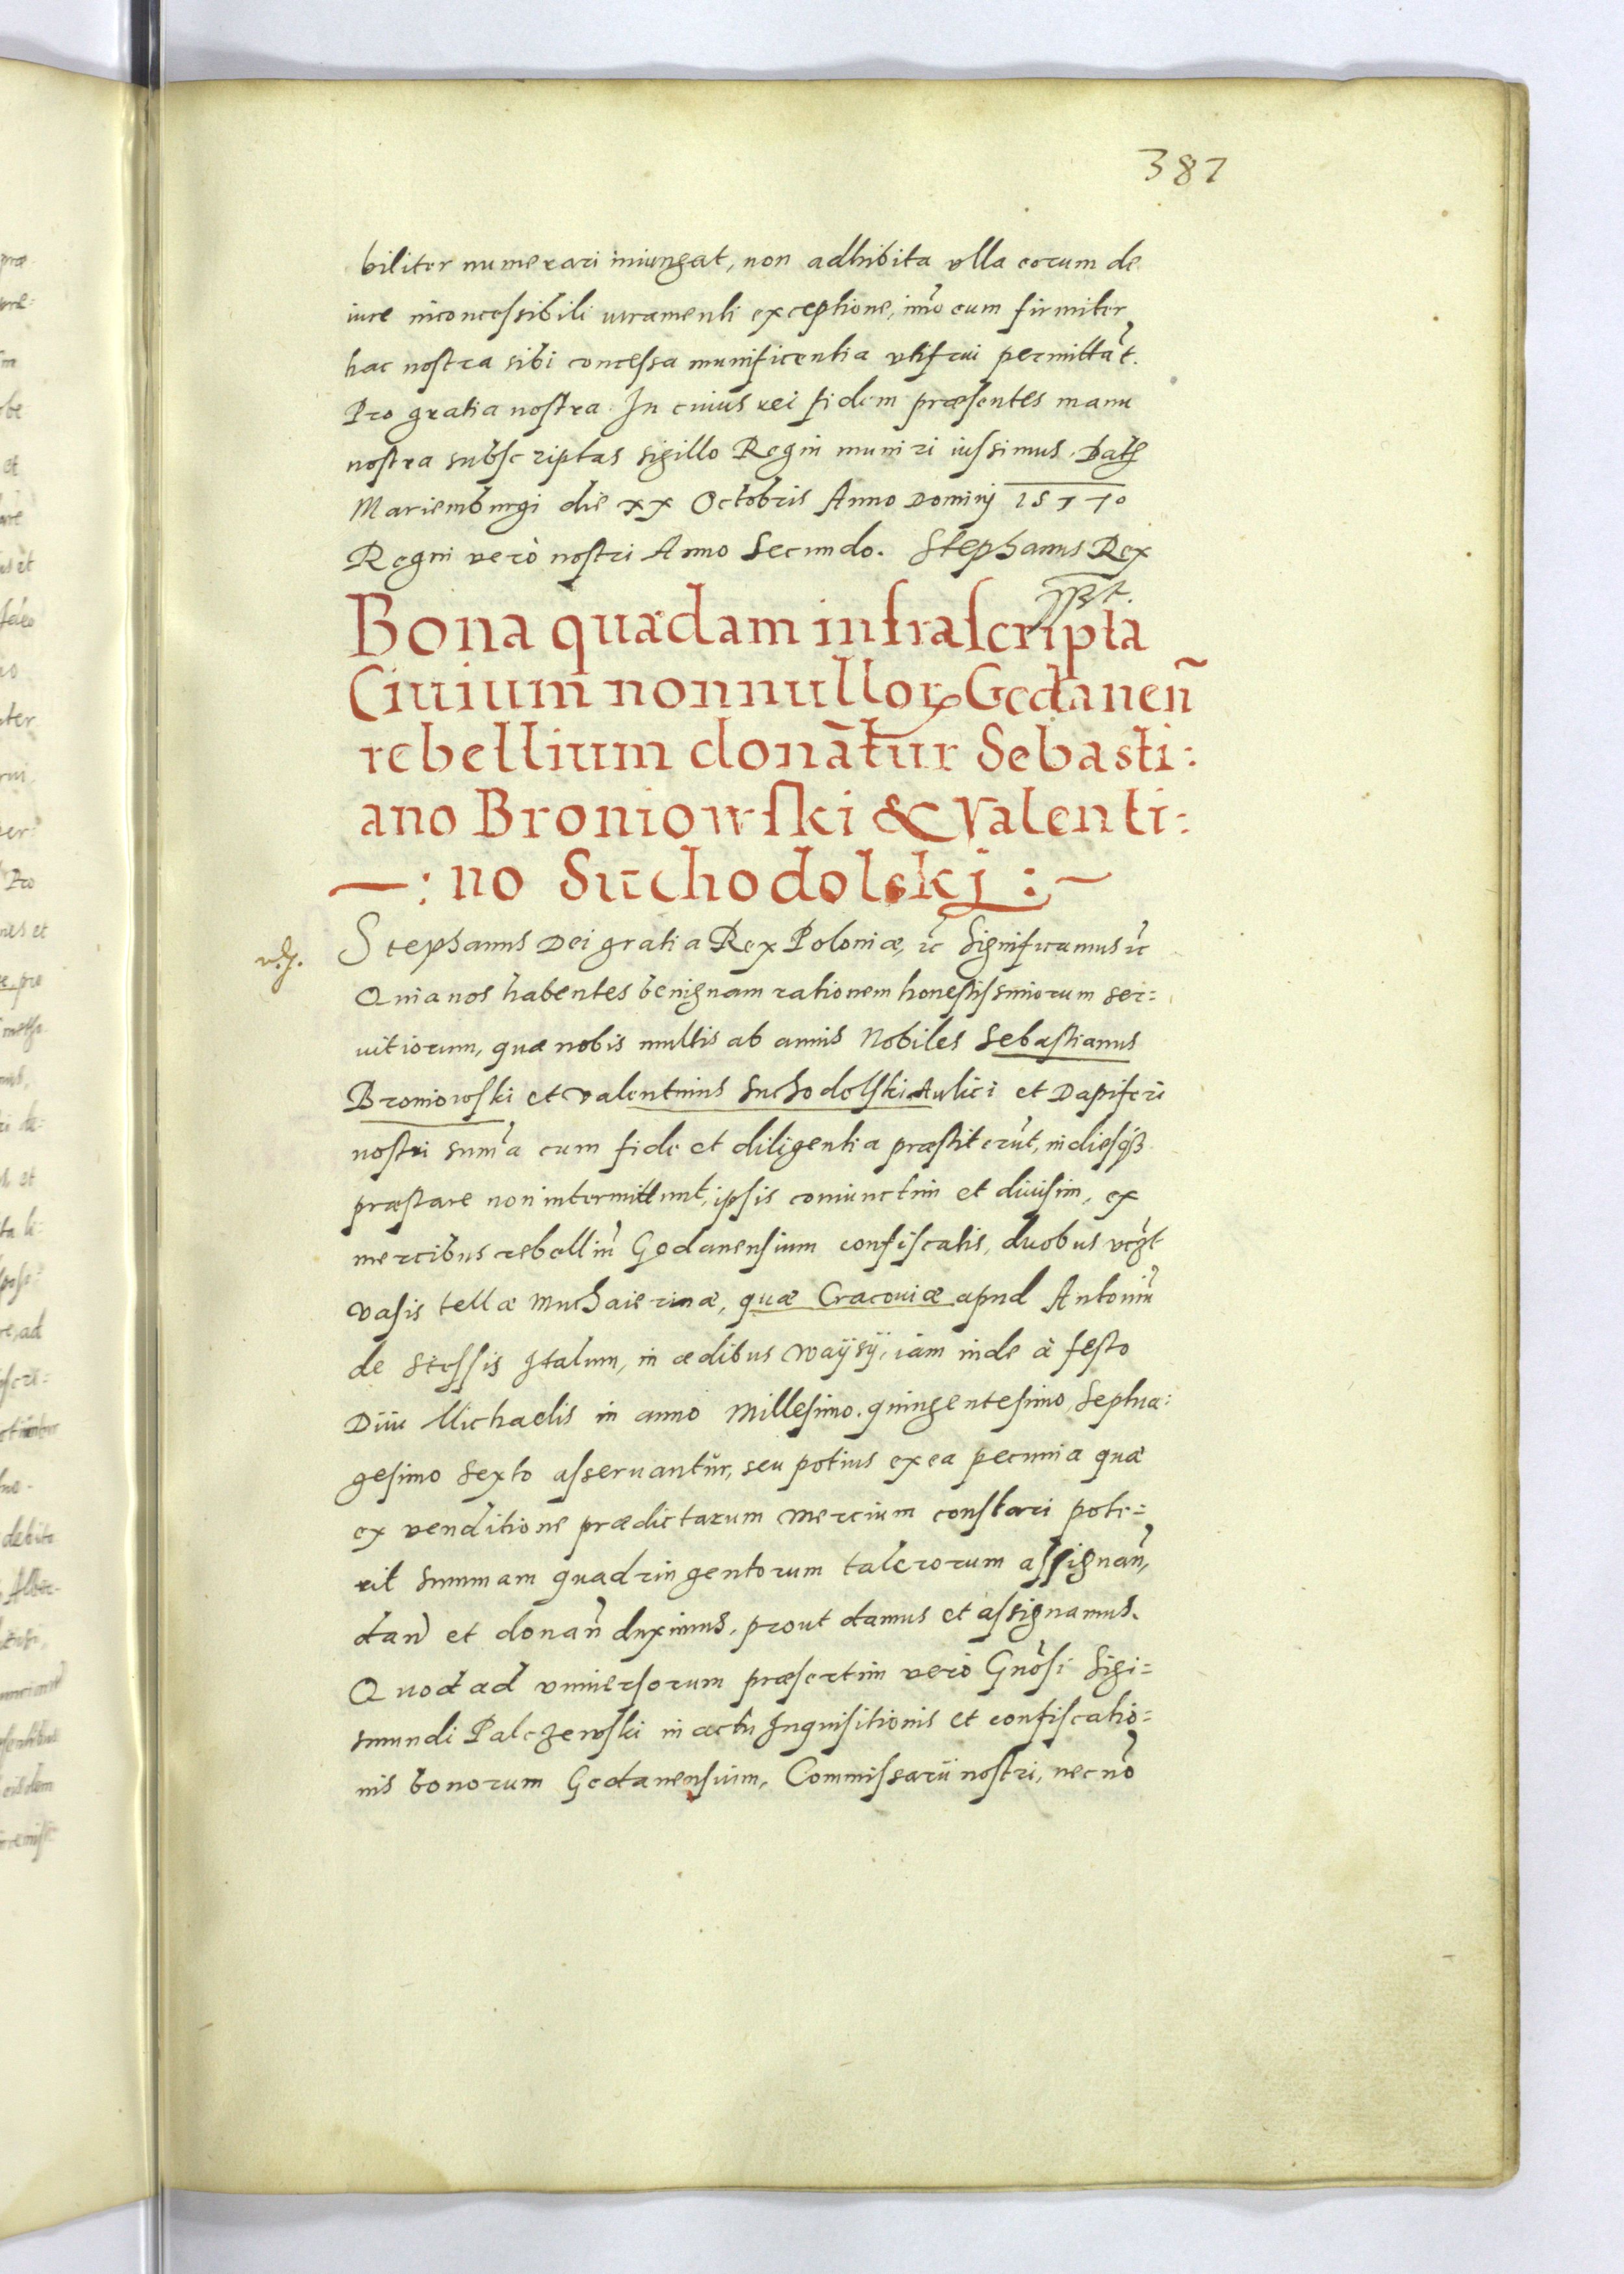 387
biliter numerari iniungat, non adhibita vlla eorum de
iure inconcessibili iuramenti exceptione, imo eum firmiter
hac nostra sibi concessa munificentia vtifrui permittãt.
Pro gratia nostra. In cuius rei fidem præsentes manu
nostra subscriptas sigillo Regni muniri iussimus. Datꝭ
Mariemburgi die xx Octobris Anno Dominj 1577o
Regni verò nostri Anno Secundo. Stephanus Rex
Bona quædam infrascripta
Ciuium nonnulloꝝ Gedaneñ
rebellium donãtur Sebasti:
ano Broniowski & Valenti:
—: no Suchodolskj :~
Stephanus Dei gratia Rex Poloniæ, ꝛc Significamus ꝛc
Quia nos habentes benignam rationem honestissimorum ser=
uitiorum, quæ nobis multis ab annis Nobiles Sebastianus
Broniowski et Valentinus Suchodolski Aulici et Dapiferi
nostri sum̃a cum fide et diligentia præstiterũt, indiesqꝫ
præstare non intermittunt, ipsis coniunctim et diuisim, ex
mercibus rebelliũ Gedanensium confiscatis, duobus vcꝫt
vasis tellæ Muchaierinæ, quæ Cracouiæ apud Antoniũ
de Stessis Italum, in ædibus Waÿsÿ, iam inde à festo
Diui Michaelis in anno Millesimo. quingentesimo, Septua:
gesimo Sexto asseruantur, seu potius ex ea pecunia quæ
ex venditione prædictarum Mercium constari pote=
rit Summam quadringentorum talerorum assignañ,
dañ et donañ duximus, prout damus et assignamus.
Quod ad vniuersorum præsertim verò Gnõsi Sigi=
smundi Palczewski in actu Inquisitionis et confiscatio=
nis bonorum Gedanensium, Commissarii nostri, necnõ